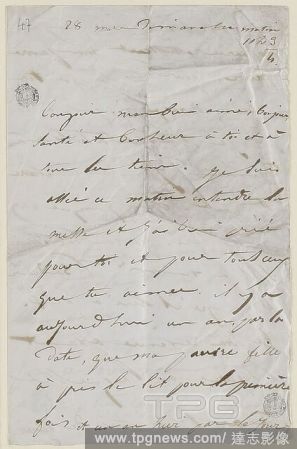 47
28 mai Dimanche matin
11 h 3/4
Bonjour mon bien aimé, bonjour
santé et bonheur à toi et à
tous les tiens. Je suis
allée ce matin entendre la
messe et j'ai bien prié
pour toi et pour tous ceux
que tu aimes. il y a
aujourd'hui un an, par la
date, que ma pauvre fille
à pris le lit pour la première
fois et un an hier par le jour
TPG
www.tpgnews.com / 達志影像